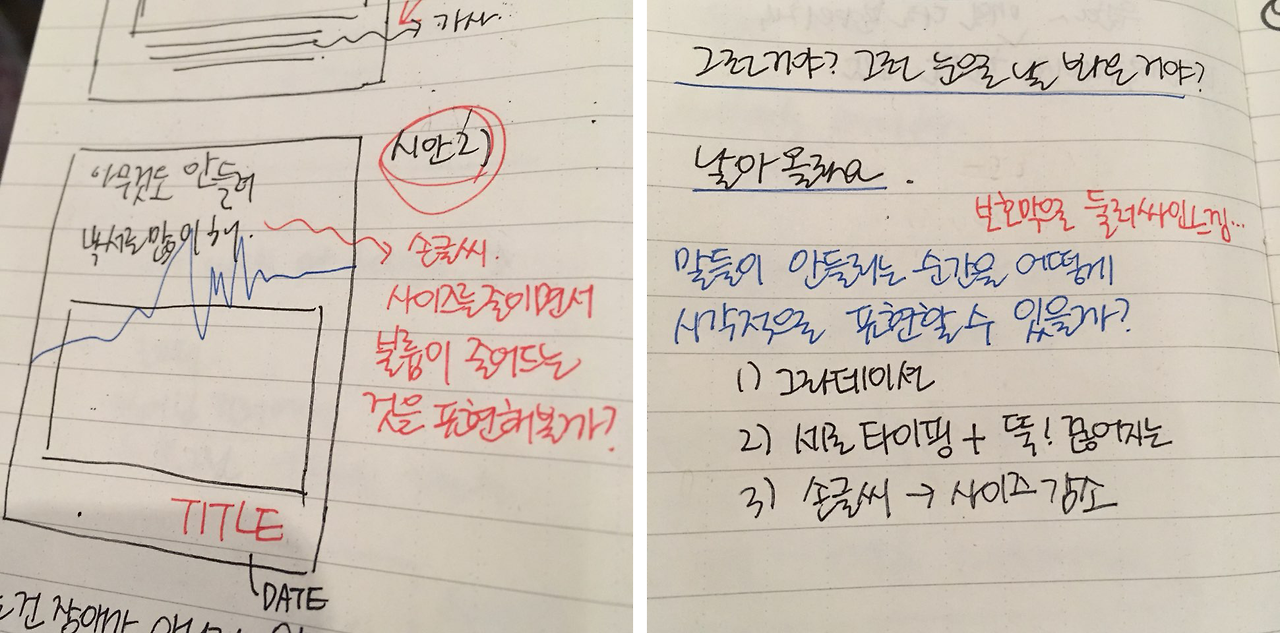 가사.
시안 2)
아무것도 안들려
손글씨.
사이즈를 줄이면서
볼륨이 줄어드는
것을 표현해볼까?
TITLE
DATE
장애가
그런거야? 그런 눈으로 날 봐온거야?
날아올라요.
보호막으로 둘러싸인느낌...
말들이 안들리는 순간을 어떻게
시각적으로 표현할 수 있을까?
1) 그라데이션
2) 세로타이핑 + 뚝! 끊어지는
3) 손글씨 → 사이즈 감소